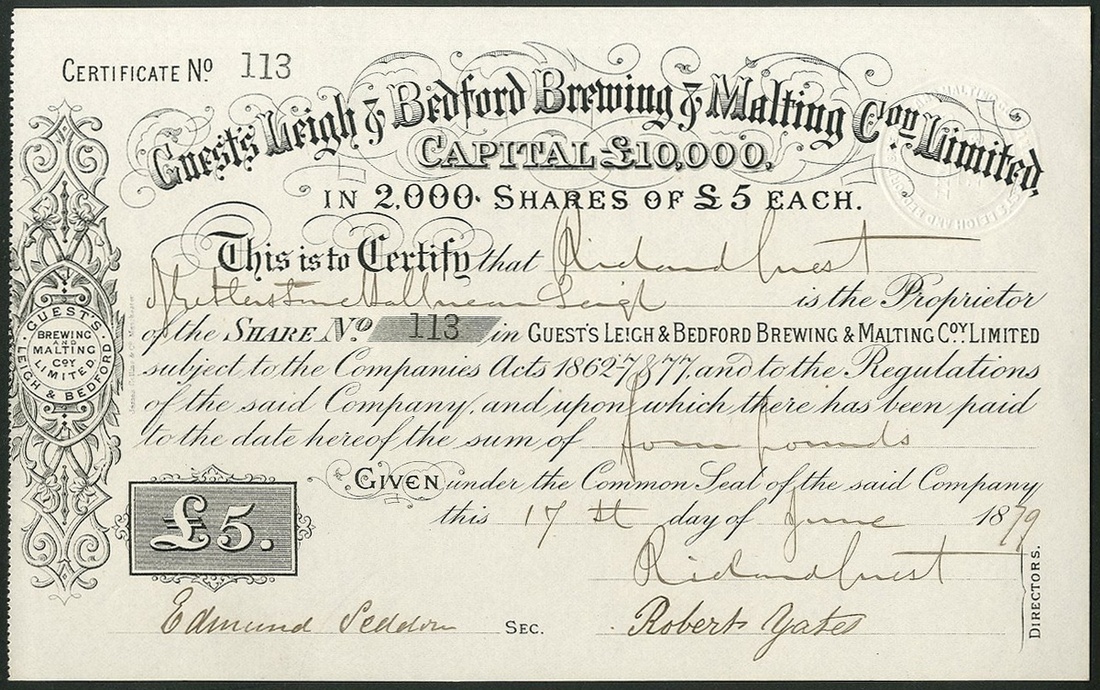 CERTIFICATE No 113
Guest's Leigh & Bedford Brewing & Malting Coy Limited,
CAPITAL £10,000,
IN 2,000 SHARES OF £5 EACH.
This is to Certify that Richard Guest
Hall near Leigh is the Proprietor
of the SHARE No 113 in GUEST'S LEIGH & BEDFORD BREWING & MALTING COY LIMITED
subject to the Companies Acts 1862-7 & 77, and to the Regulations
of the said Company, and upon which there has been paid
to the date hereof the sum of four pounds
GIVEN under the Common Seal of the said Company
this 17th day of June 1879
£5.
Richard Guest
Edmund Seddon SEC. Robert Yates
DIRECTORS.
GUEST'S
BREWING
AND
MALTING
COY
LIMITED.
LEIGH & BEDFORD